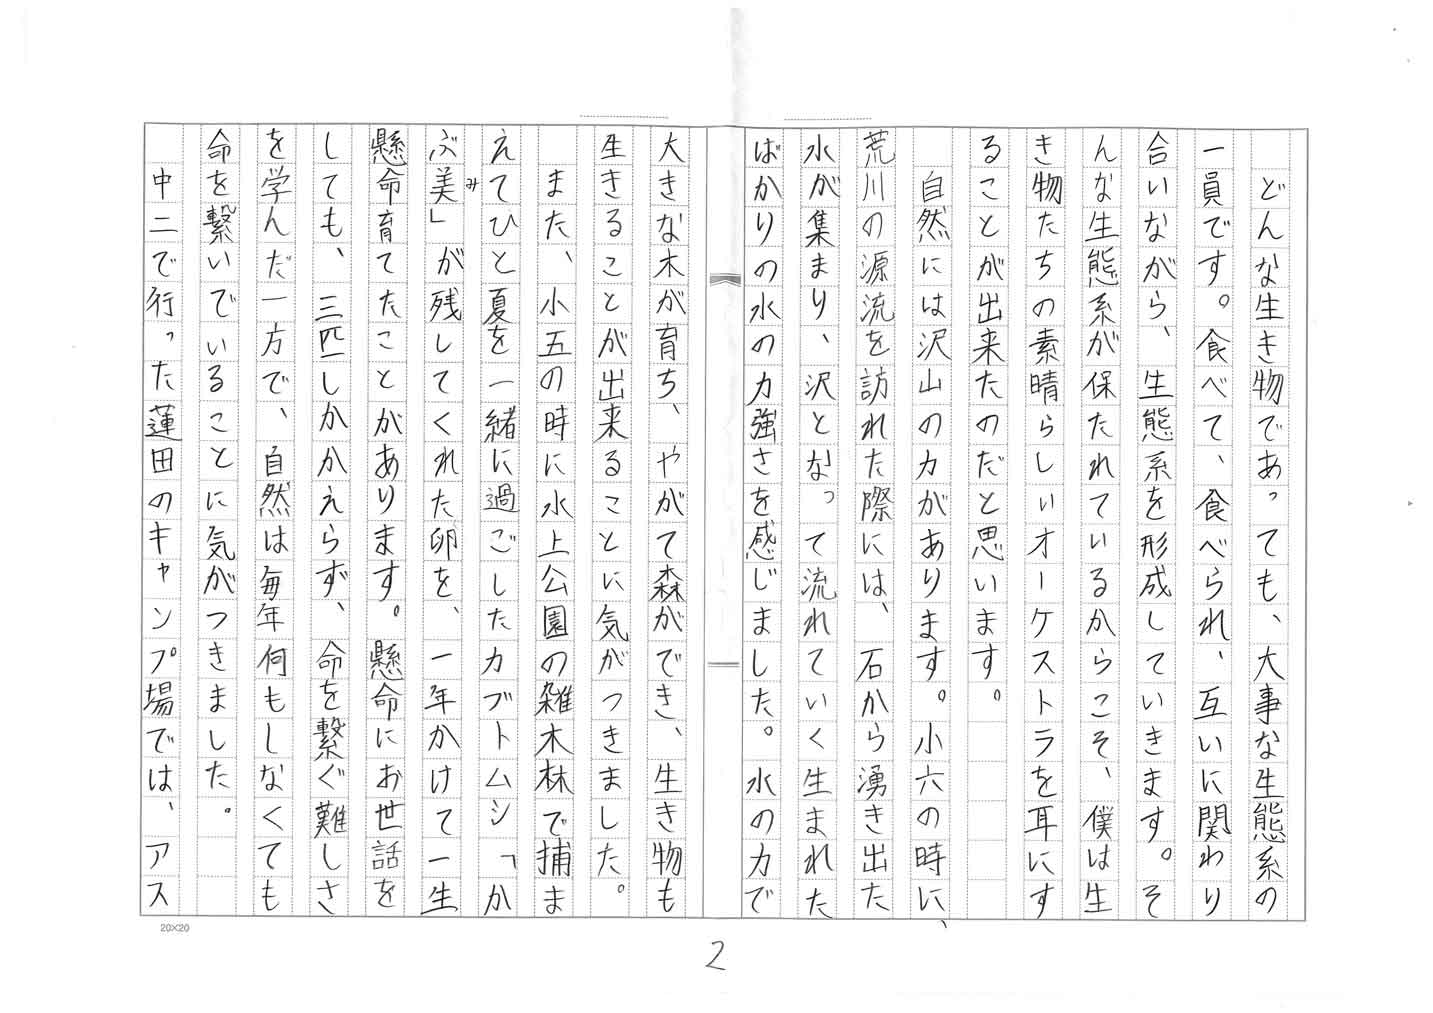 どんな生き物であっても、大事な生態系の
一員です。食べて、食べられ、互いに関わり
合いながら、生態系を形成していきます。そ
んな生態系が保たれているからこそ、僕は生
き物たちの素晴らしいオーケストラを耳にす
ることが出来たのだと思います。
　自然には沢山の力があります。小六の時に、
荒川の源流を訪れた際には、石から湧き出た
水が集まり、沢となって流れていく生まれた
ばかりの水の力強さを感じました。水の力で
大きな木が育ち、やがて森ができ、生き物も
生きることが出来ることに気がつきました。
　また、小五の時に水上公園の雑木林で捕ま
えてひと夏を一緒に過ごしたカブトムシ「か
ぶ美」が残してくれた卵を、一年かけて一生
み
懸命育てたことがあります。懸命にお世話を
しても、三匹しかかえらず、命を繋ぐ難しさ
を学んだ一方で、自然は毎年何もしなくても
命を繋いでいることに気がつきました。
　中二で行った蓮田のキャンプ場では、アス
20×20
2